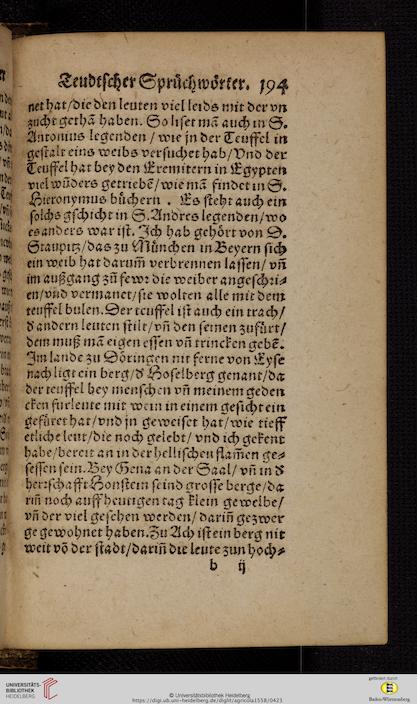 Teudtscher Sprüchwörter. 194
net hat/die den leuten viel leids mit der vn
zucht gethā haben. So liset mā auch in S.
Antonius legenden / wie jn der Teuffel in
gestalt eins weibs versuchet hab/Vnd der
Teuffel hat bey den Eremitern in Egypten
viel wūders getriebē/wie mā findet in S.
Hieronymus büchern . Es steht auch ein
solchs gschicht in S. Andres legenden/wo
es anders war ist. Ich hab gehört von D.
Staupitz/das zu München in Beyern sich
ein weib hat darum̄ verbrennen lassen/ vn̄
im außgang zū fewr die weiber angeschri-
en/vnd vermanet/sie wolten alle mit dem
teuffel bulen. Der teuffel ist auch ein trach/
d andern leuten stilt/vn̄ den seinen zufürt/
dem muß mā eigen essen vn̄ trincken gebē.
Im lande zu Döringen nit ferne von Eyse
nach ligt ein berg/d Hoselberg genant/da
der teuffel bey menschen vn̄ meinem geden
cken furleute mit wein in einem gesicht ein
gefüret hat/vnd jn geweiset hat/wie tieff
etliche leut/die noch gelebt/ vnd ich gekent
habe/bereit an in der hellischen flam̄en ge-
sessen sein. Bey Gena an der Saal/ vn̄ in d
herrschafft Honstein seind grosse berge/da
rin̄ noch auff heutigen tag klein gewelbe/
vn̄ der viel gesehen werden/ darin̄ gezwer
ge gewohnet haben. Zu Ach ist ein berg nit
weit vō der stadt/darin̄ die leute zun hoch-
b ij
UNIVERSITÄTS-
BIBLIOTHEK
HEIDELBERG
© Universitätsbibliothek Heidelberg
https://digi.ub.uni-heidelberg.de/diglit/agricola1558/0423
gefördert durch
Baden-Württemberg